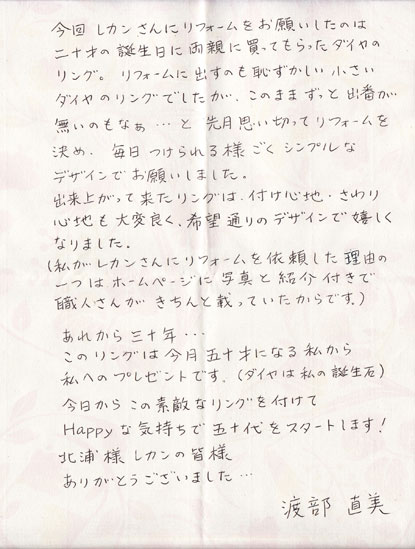 今回 レカンさんにリフォームをお願いしたのは
二十才の誕生日に両親に買ってもらったダイヤの
リング。リフォームに出すのも恥ずかしい小さい
ダイヤのリングでしたが、このままずっと出番が
無いのもなぁ…と 先月思い切ってリフォームを
決め、毎日つけられる様ごくシンプルな
デザインでお願いしました。
出来上がって来たリングは、付け心地・さわり
心地も大変良く、希望通りのデザインで嬉しく
なりました。
(私がレカンさんにリフォームを依頼した理由の
一つはホームページに写真と紹介付きで
職人さんがきちんと載っていたからです。)
あれから三十年…
このリングは今月五十才になる私から
私へのプレゼントです。(ダイヤは私の誕生石)
今日からこの素敵なリングを付けて
Happyな気持ちで五十代をスタートします!
北浦様 レカンの皆様
ありがとうございました…
渡部 直美